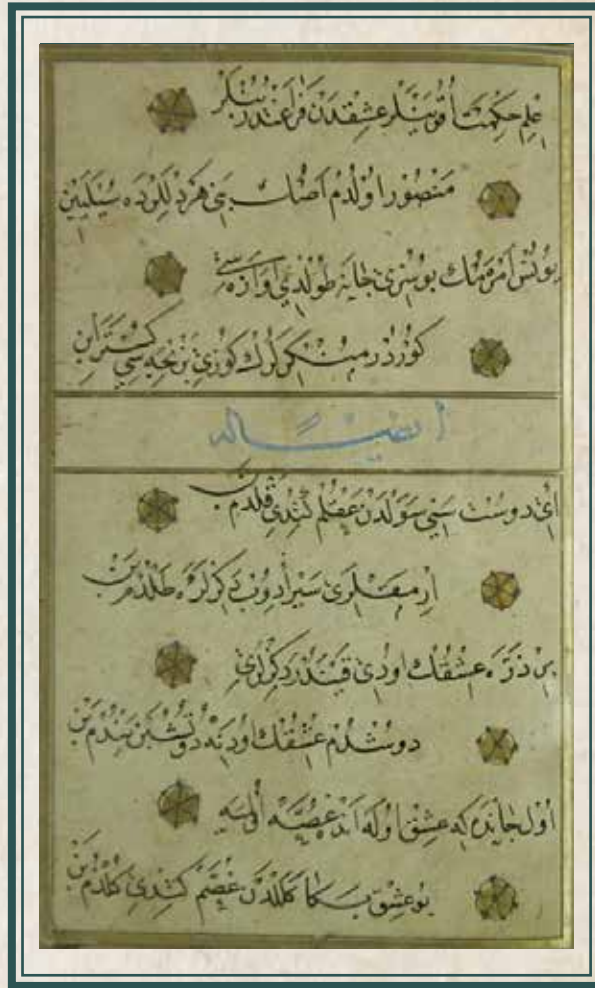 علم حكمت اوقوينلر عشقدن فراغتدر بنلر
منصور اولدم اصك بنى هر ديللرده سيلاين
يونس امره نك بو سزى جانه طولدى اوازه سى
كوزدر منكرلرك كوزى بز نجه سى كستراين
ايضًا له
اى دوست سنى سولدن عقلم كتدى قلدم بن
ارمقلرى سير ادوب دكزلره طلدم بن
بر ذره عشقك اودى قيندرر دكزلرى
دوشدم عشقك اودنه دوتشبن يندم بن
اول جانده كه عشق اوله انده غصه اولميه
بو عشق بكا كللدن غصم كتدى كلدم بن